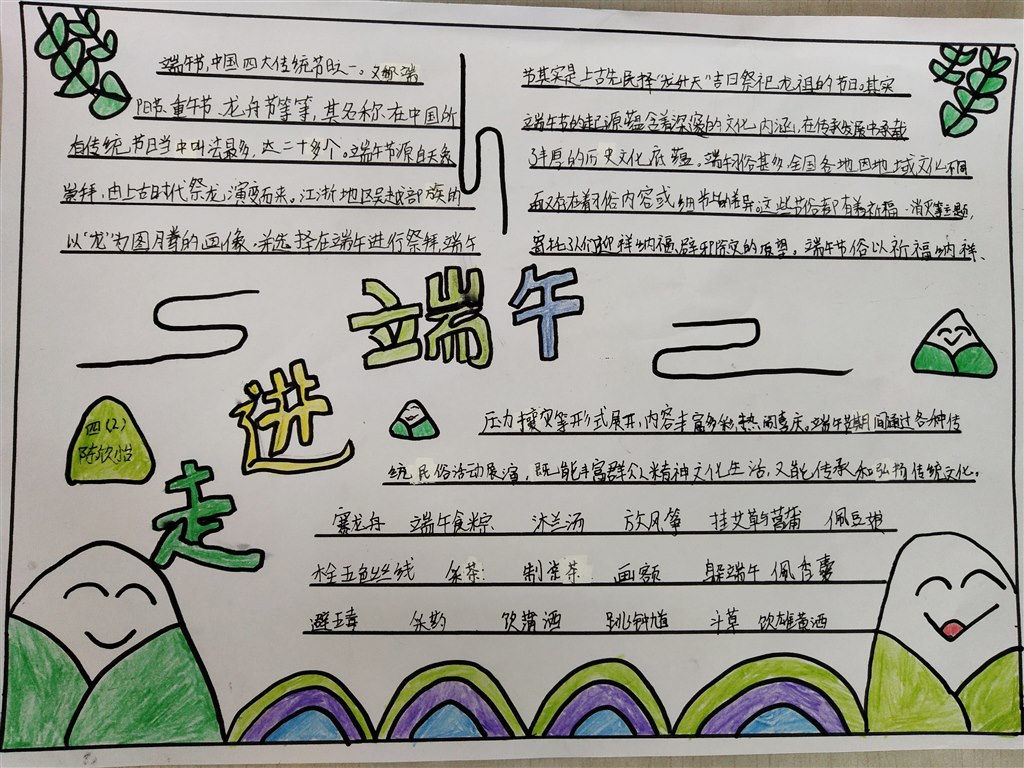 端午节,中国四大传统节日之一。又称端
阳节、重午节、龙舟节等等,其名称在中国所
有传统节日当中叫法最多,达二十多个。端午节源自天象
崇拜,由上古时代祭龙演变而来。江浙地区吴越部族的
以“龙”为图腾的画像。并选择在端午进行祭拜端午
节其实是上古先民择“龙升天”吉日祭祀龙祖的节日。其实
端午节的起源蕴含着深邃的文化内涵,在传承发展中承载
了丰厚的历史文化底蕴。端午习俗甚多,全国各地因地域文化不同
而又存在着习俗内容或细节上的差异。这些节俗都有着祈福、消灾等主题,
寄托了人们迎祥纳福、辟邪除灾的愿望。端午节俗以祈福纳祥、
走进端午
四(2)
陈欣怡
压力攘灾等形式展开,内容丰富多彩,热闹喜庆。端午节期间通过各种传
统民俗活动展演,既能丰富群众精神文化生活,又能传承和弘扬传统文化。
赛龙舟 端午食粽 沐兰汤 放风筝 挂艾草与菖蒲 佩豆娘
拴五色丝线 凉茶 制凉茶 画额 躲端午 佩香囊
避五毒 采药 饮蒲酒 跳钟馗 斗草 饮雄黄酒